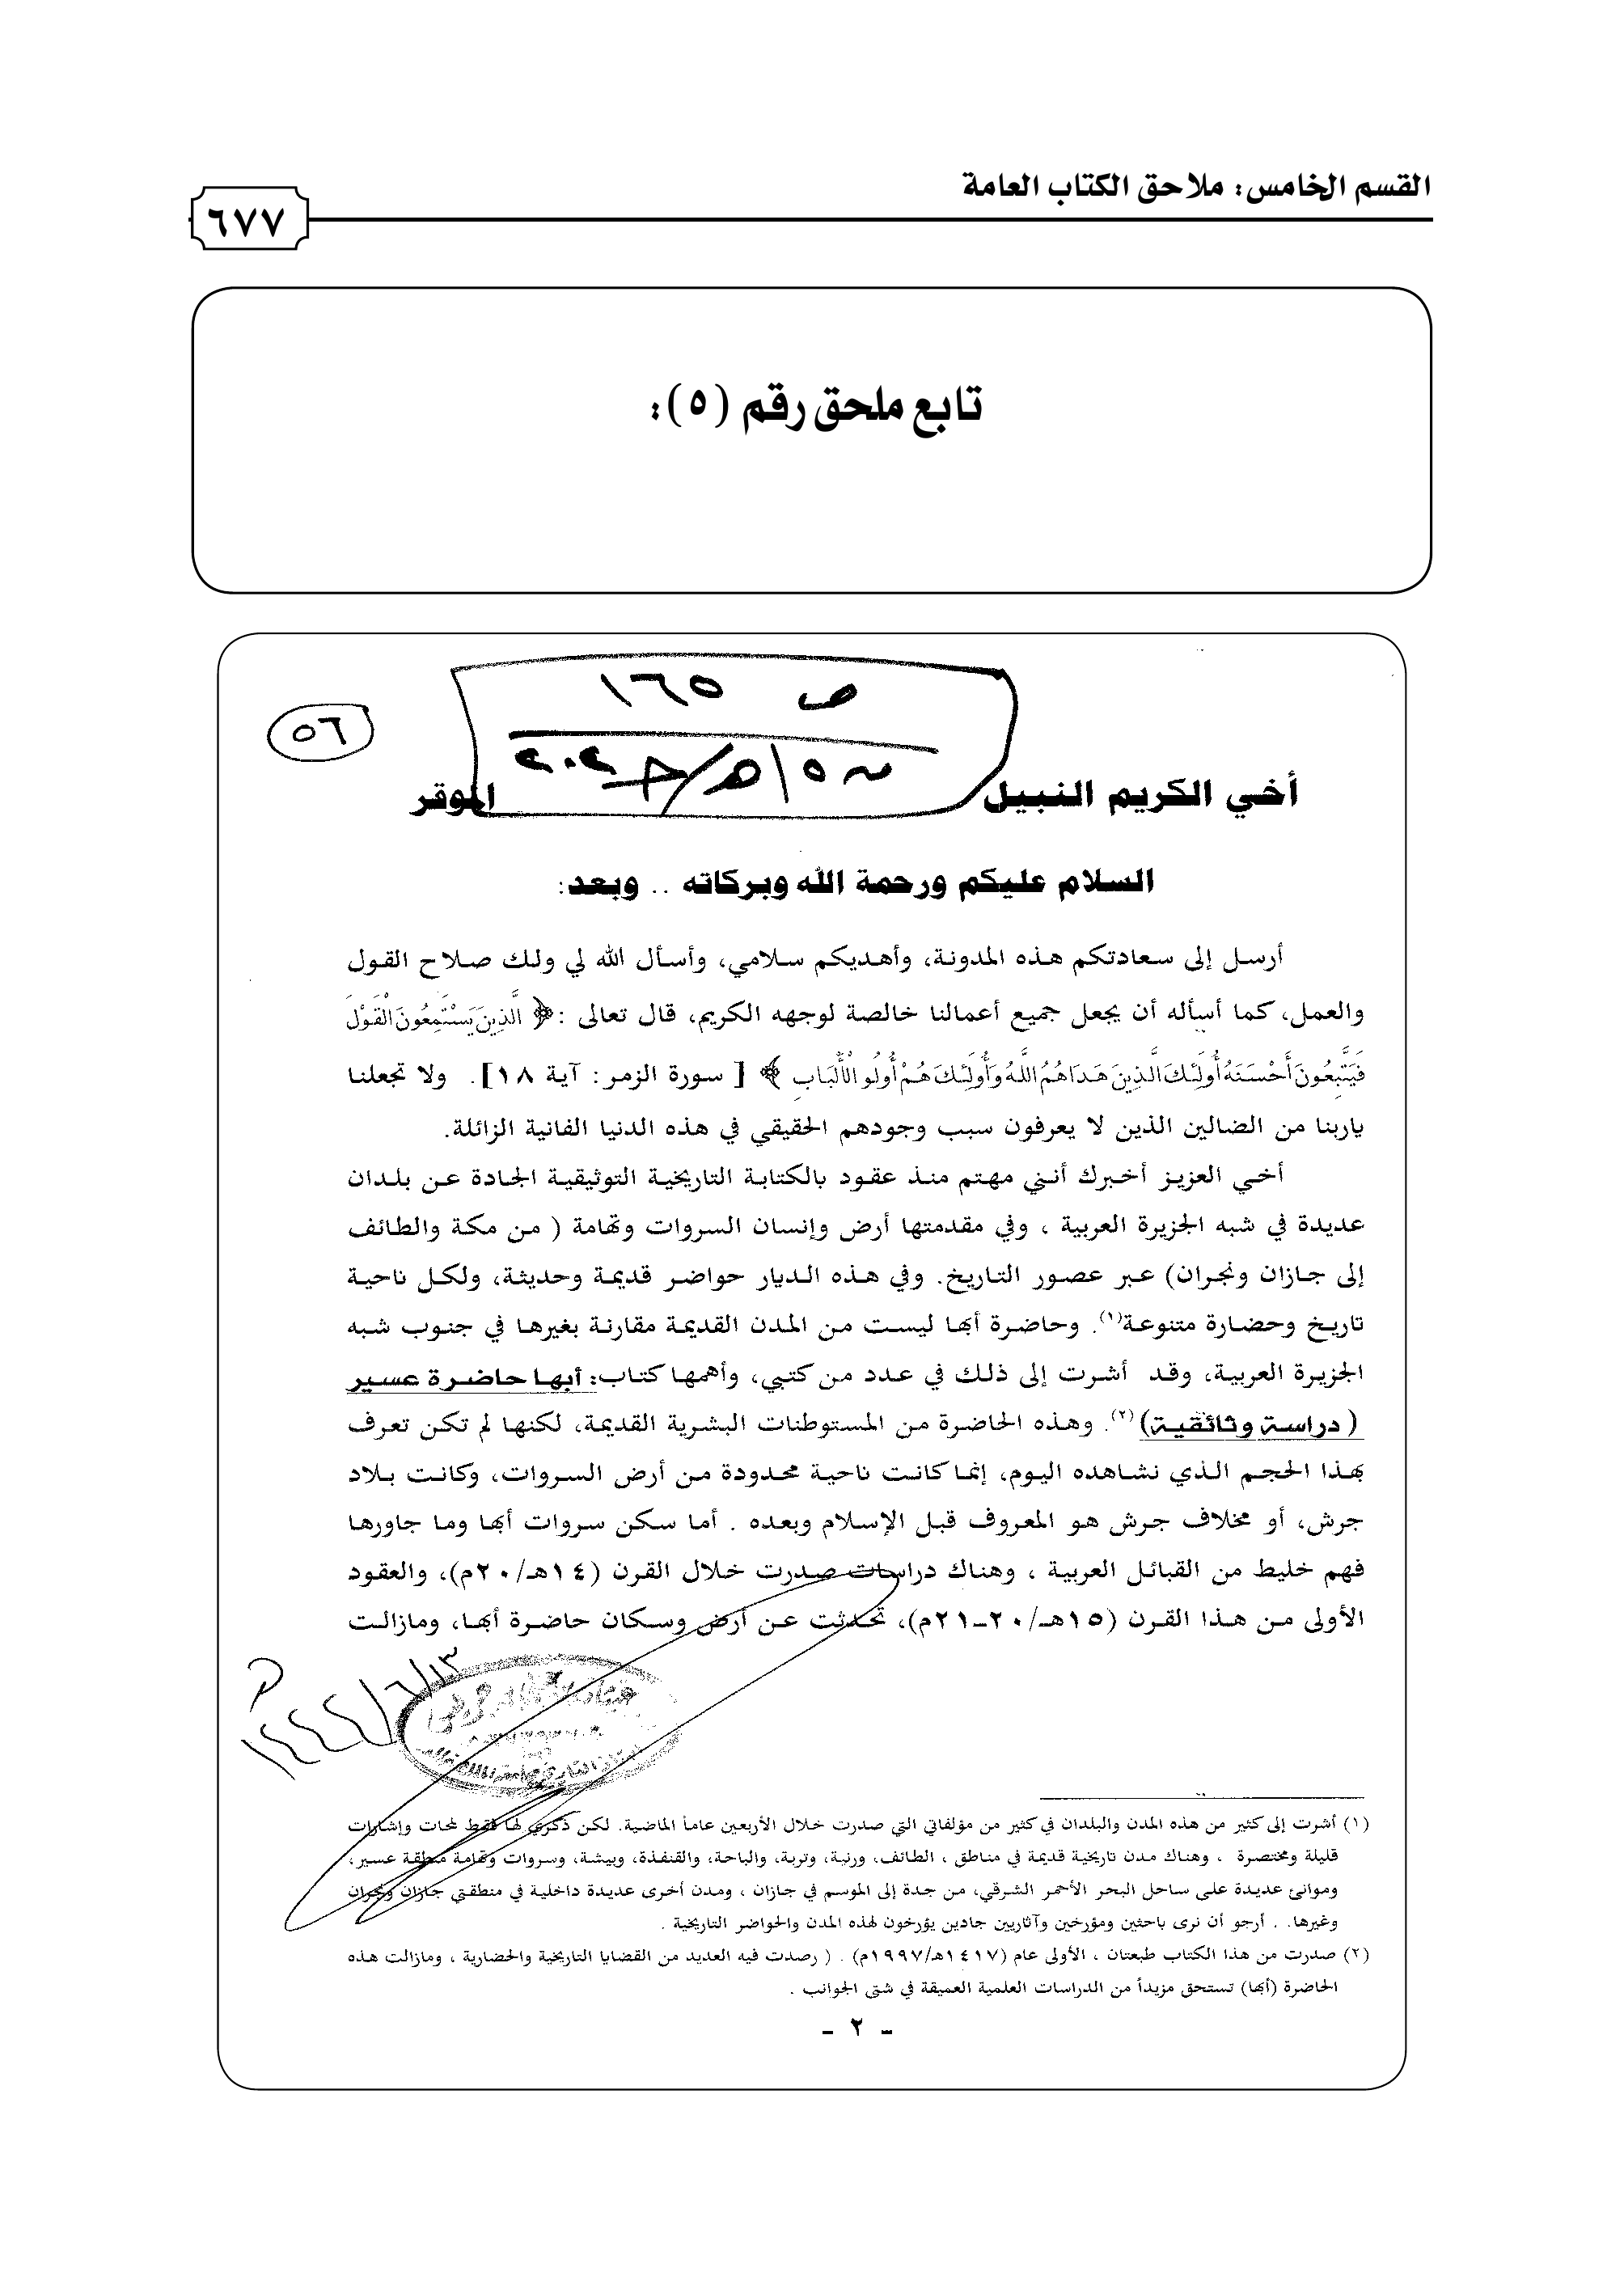 القسم الخامس: ملاحق الكتاب العامة
٦٧٧
تابع ملحق رقم (٥):
ص ١٦٥
٥٦
أخي الكريم النبيل الموقر
السلام عليكم ورحمة الله وبركاته .. وبعد:
أرسل إلى سعادتكم هذه المدونة، وأهديكم سلامي، وأسأل الله لي ولك صلاح القول
والعمل، كما أسأله أن يجعل جميع أعمالنا خالصة لوجهه الكريم، قال تعالى :﴿ الَّذِينَ يَسْتَمِعُونَ الْقَوْلَ
فَيَتَّبِعُونَ أَحْسَنَهُ أُولَئِكَ الَّذِينَ هَدَاهُمُ اللَّهُ وَأُولَئِكَ هُمْ أُولُو الْأَلْبَابِ ﴾ [ سورة الزمر: آية ١٨]. ولا تجعلنا
ياربنا من الضالين الذين لا يعرفون سبب وجودهم الحقيقي في هذه الدنيا الفانية الزائلة.
أخي العزيز أخبرك أنني مهتم منذ عقود بالكتابة التاريخية التوثيقية الجادة عن بلدان
عديدة في شبه الجزيرة العربية ، وفي مقدمتها أرض وإنسان السروات وتهامة ( من مكة والطائف
إلى جازان ونجران) عبر عصور التاريخ. وفي هذه الديار حواضر قديمة وحديثة، ولكل ناحية
تاريخ وحضارة متنوعة(١). وحاضرة أبها ليست من المدن القديمة مقارنة بغيرها في جنوب شبه
الجزيرة العربية، وقد أشرت إلى ذلك في عدد من كتبي، وأهمها كتاب: أبها حاضرة عسير
( دراسة وثائقية)(٢). وهذه الحاضرة من المستوطنات البشرية القديمة، لكنها لم تكن تعرف
بهذا الحجم الذي نشاهده اليوم، إنما كانت ناحية محدودة من أرض السروات، وكانت بلاد
جرش، أو مخلاف جرش هو المعروف قبل الإسلام وبعده . أما سكن سروات أبها وما جاورها
فهم خليط من القبائل العربية ، وهناك دراسات صدرت خلال القرن (١٤هـ/٢٠م)، والعقود
الأولى من هذا القرن (١٥هـ/٢٠-٢١م)، تحدثت عن أرض وسكان حاضرة أبها، ومازالت
١٤٤٤/٦/١٣
(١) أشرت إلى كثير من هذه المدن والبلدان في كثير من مؤلفاتي التي صدرت خلال الأربعين عاماً الماضية. لكن ذكري لها فقط لمحات وإشارات
قليلة ومختصرة ، وهناك مدن تاريخية قديمة في مناطق ، الطائف، ورنية، وتربة، والباحة، والقنفذة، وبيشة، وسروات وتهامة منطقة عسير،
وموانئ عديدة على ساحل البحر الأحمر الشرقي، من جدة إلى الموسم في جازان ، ومدن أخرى عديدة داخلية في منطقتي جازان ونجران
وغيرها. . أرجو أن نرى باحثين ومؤرخين وآثاريين جادين يؤرخون لهذه المدن والحواضر التاريخية .
(٢) صدرت من هذا الكتاب طبعتان ، الأولى عام (١٤١٧هـ/١٩٩٧م) . ( رصدت فيه العديد من القضايا التاريخية والحضارية ، ومازالت هذه
الحاضرة (أبها) تستحق مزيداً من الدراسات العلمية العميقة في شتى الجوانب .
- ٢ -